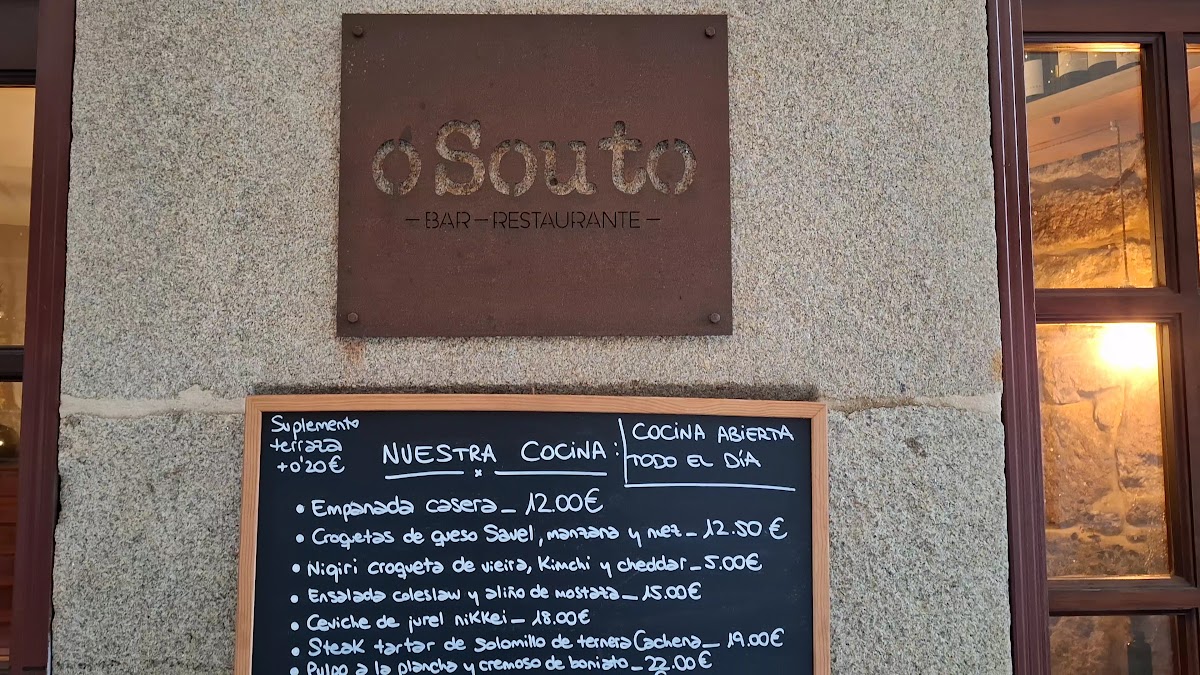 ó Souto
-BAR-RESTAURANTE-
Suplemento
terraza
+0'20€
NUESTRA COCINA:
COCINA ABIERTA
TODO EL DÍA
• Empanada casera_ 12.00€
• Croquetas de queso Savel, manzana y nuez_12.50€
• Nigiri croqueta de vieira, Kimchi y cheddar_5.00€
• Ensalada coleslaw y aliño de mostaza_15.00€
• Ceviche de jurel nikkei_18.00€
• Steak tartar de Solomillo de ternera Cachena_19.00€
• Pulpo a la plancha y cremoso de boniato_22.00€